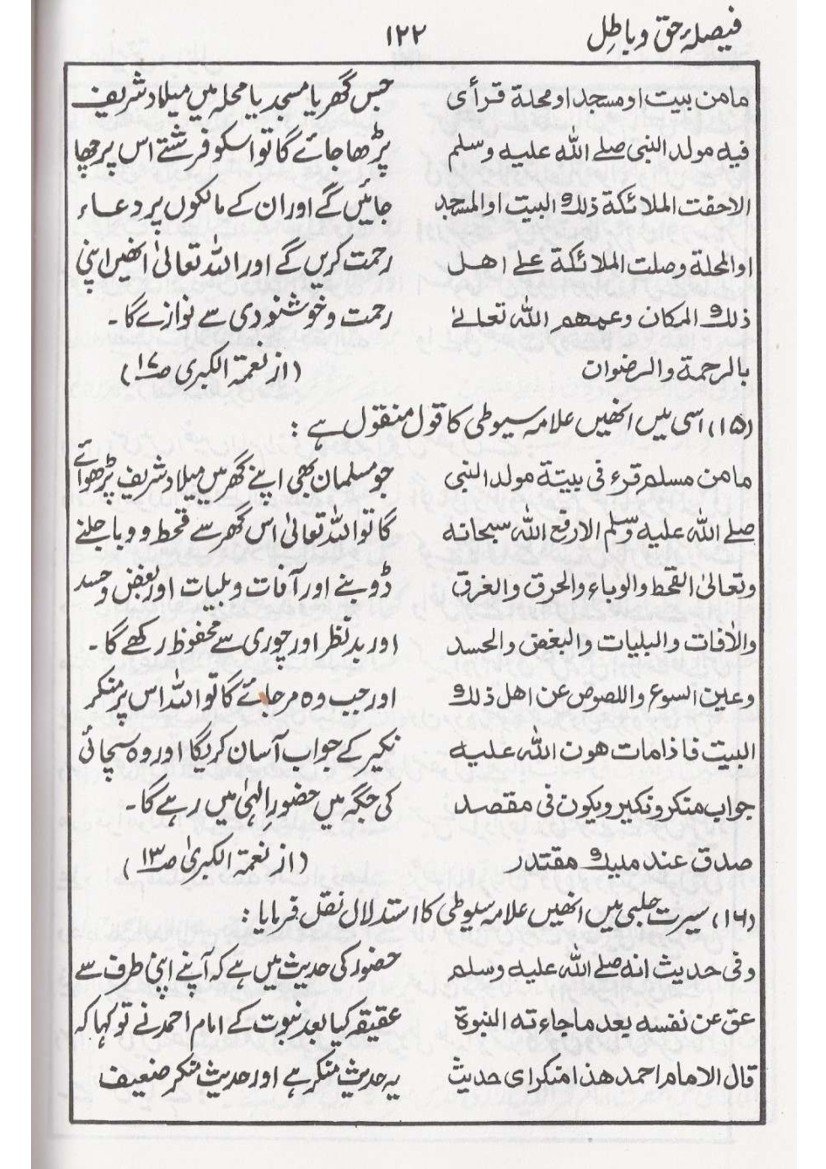 فیصلۂ حق و باطل ۱۲۲
مامن بیت اومسجد اومحلة قرأی جس گھر یا مسجد یا محلہ میں میلاد شریف
فیه مولد النبی صلے اللہ علیه وسلم پڑھا جائے گا تو اسکو فرشتے اس پر چھا
الاحفت الملائکة ذلك البیت اوالمسجد جائیں گے اور ان کے مالکوں پر دعاء
اوالمحلة وصلت الملائکة علے اهل رحمت کریں گے اور اللہ تعالیٰ انھیں اپنی
ذلك المکان وعمهم اللہ تعلےٰ رحمت و خوشنودی سے نوازے گا۔
بالرحمة والرضوان (از نعمة الکبری ص۱۲)
(۱۵) اسی میں انھیں علامہ سیوطی کا قول منقول ہے:
مامن مسلم قرء فی بیتة مولد النبی جو مسلمان بھی اپنے گھر میں میلاد شریف پڑھوائے
صلے اللہ علیه وسلم الارفع اللہ سبحانه گا تو اللہ تعالیٰ اس گھر سے قحط و وبا جلنے
وتعالیٰ القحط والوباء والحرق والغرق ڈوبنے اور آفات و بلیات اور بغض و حسد
والأفات والبلیات والبغض والحسد اور بدنظر اور چوری سے محفوظ رکھے گا۔
وعین السوع واللصوص عن اهل ذلك اور جب وہ مرجائے گا تو اللہ اس پر منکر
البیت فاذامات هون اللہ علیه نکیر کے جواب آسان کریگا اور وہ سچائی
جواب منکرونکیر ویکون فی مقصد کی جگہ میں حضورِ الٰہی میں رہے گا۔
صدق عند ملیك مقتدر (از نعمة الکبریٰ ص۱۳)
(۱۶) سیرت حلبی میں انھیں علامہ سیوطی کا استدلال نقل فرمایا:
وفی حدیث انه صلے اللہ علیه وسلم حضور کی حدیث میں ہے کہ آپنے اپنی طرف سے
عق عن نفسه بعد ماجاءته النبوة عقیقہ کیا بعد نبوت کے امام احمد نے تو کہا کہ
قال الامام احمد هذا منکر ای حدیث یہ حدیث منکر ہے اور حدیث منکر ضعیف